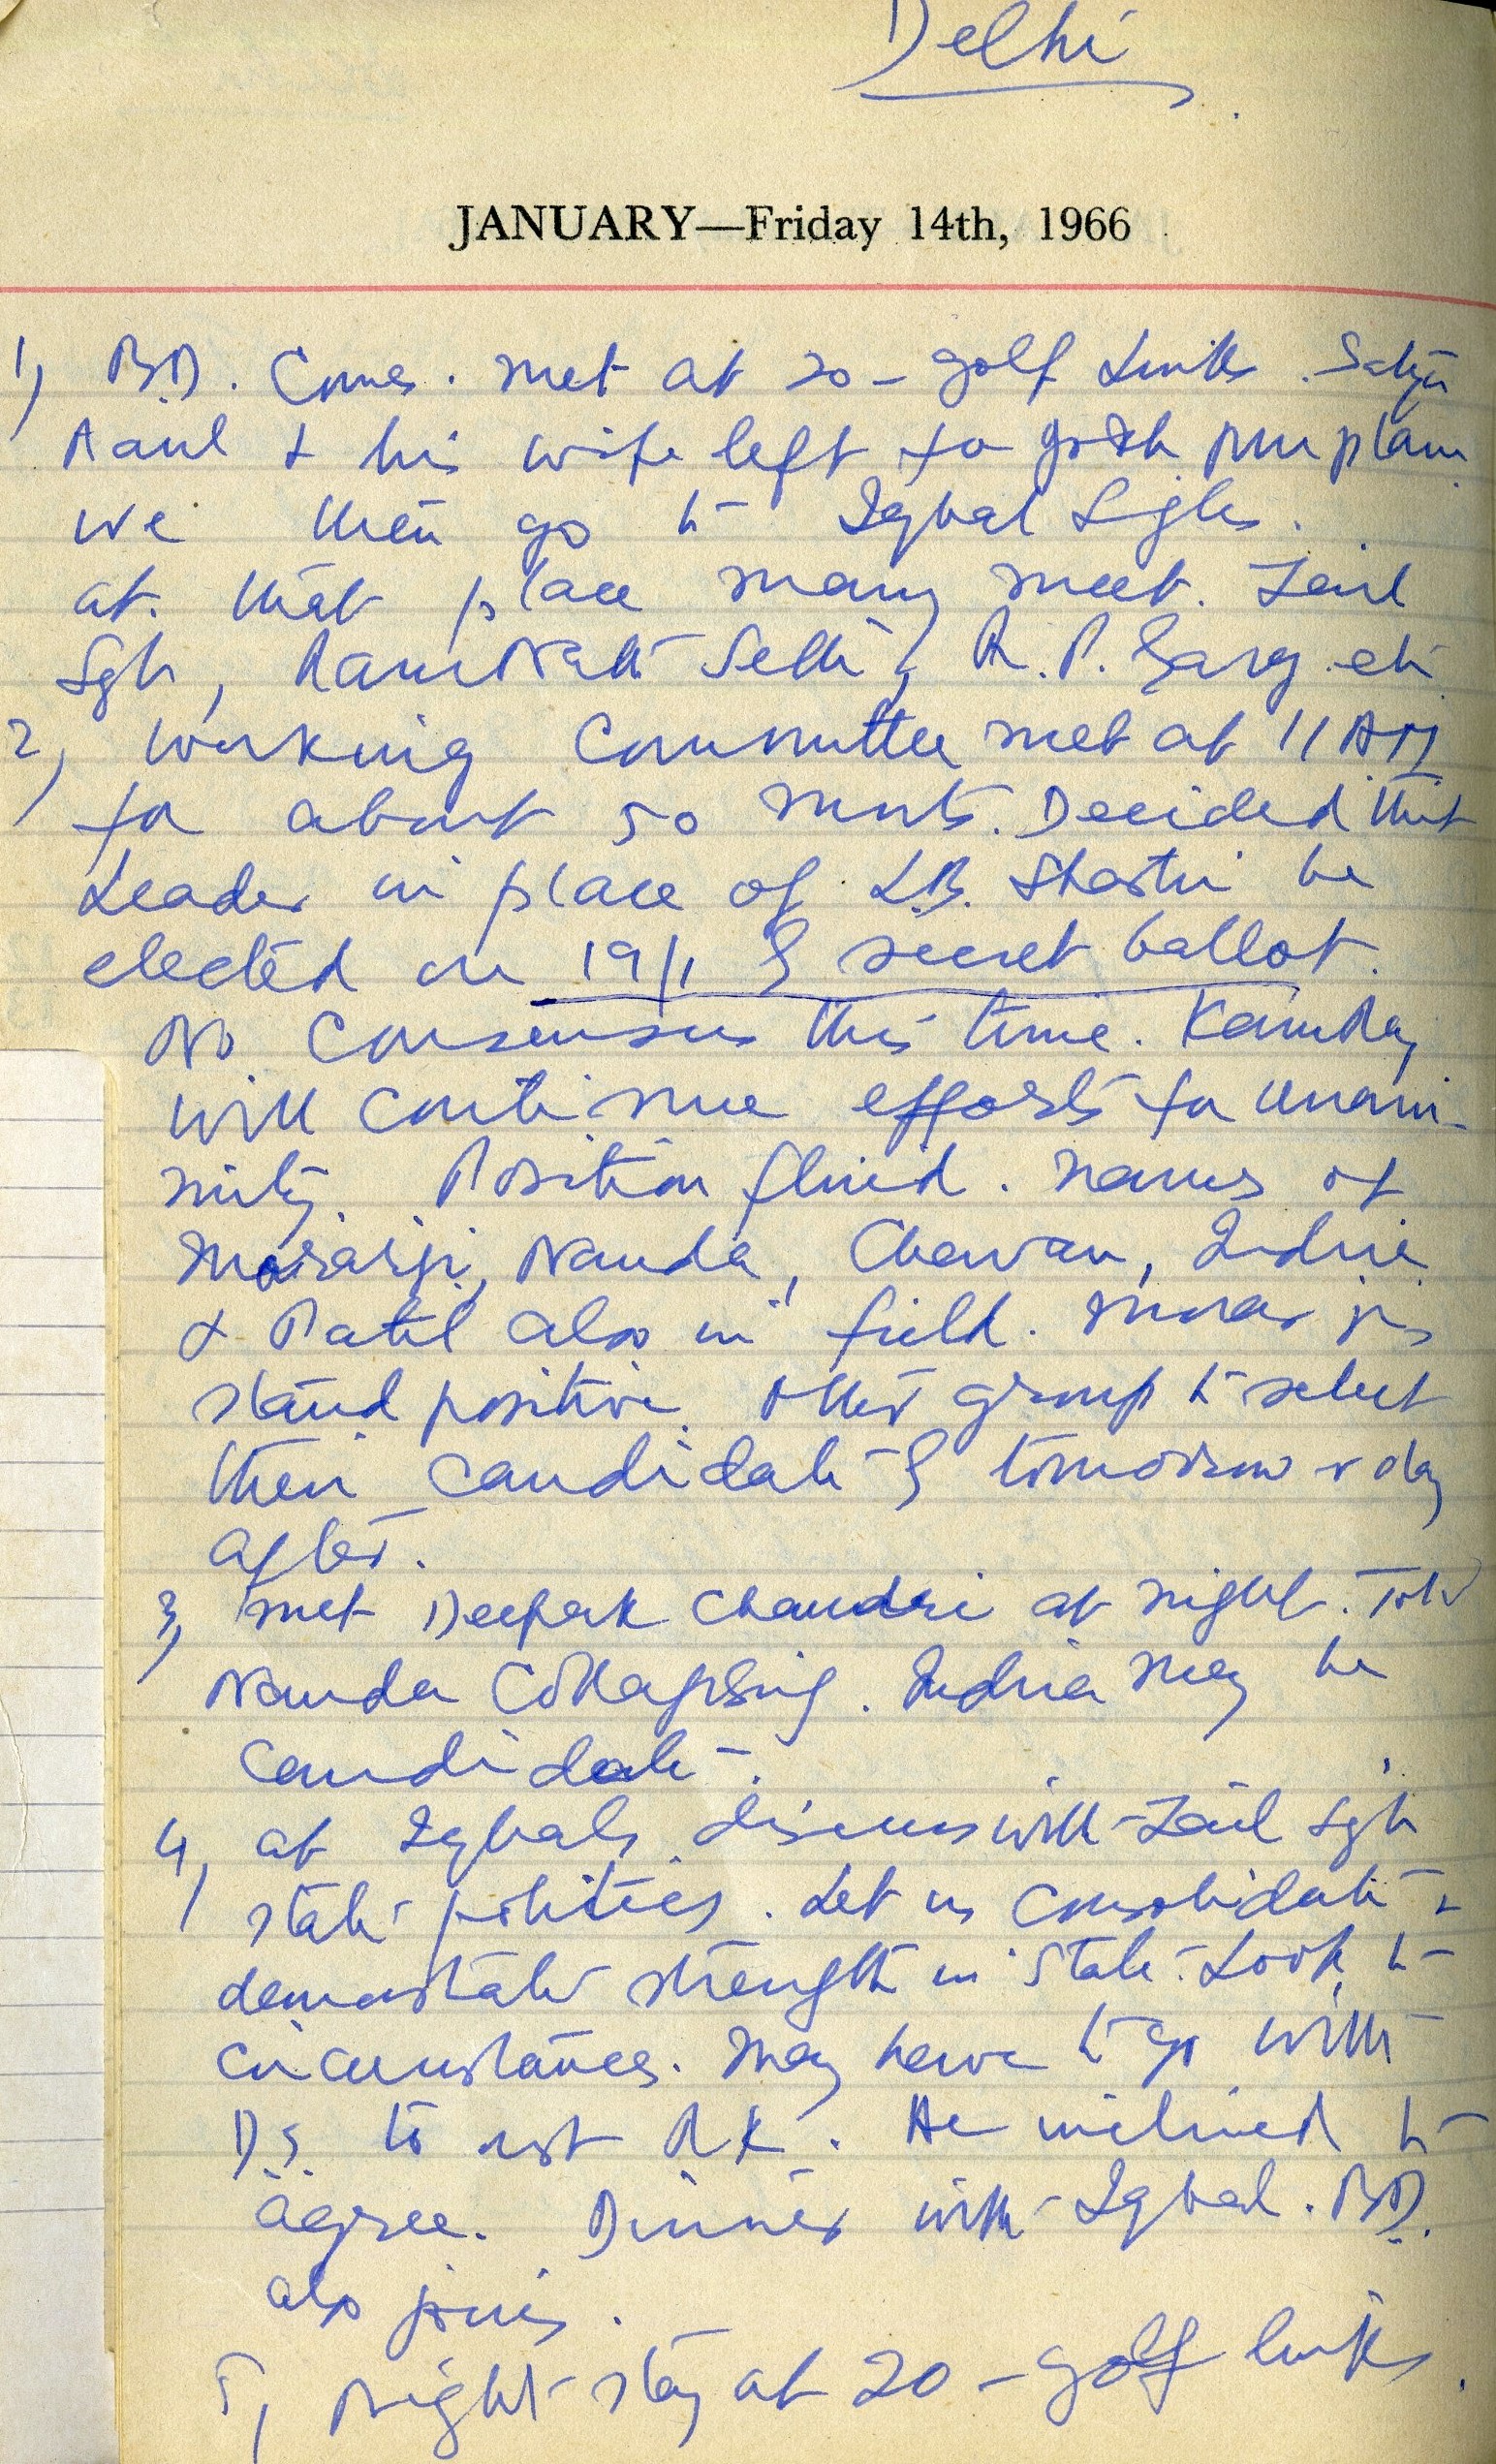 Delhi
JANUARY—Friday 14th, 1966
1) B.D. Comes. Met at 20 - golf Links. Satya
Paul & his wife left for
we then go to Iqbal Sghs.
at that place many meet. Zail
Sgh, Ram Nath Sethi, R.P. Garg etc
2) Working Committee met at 11 AM
for about 50 mnts. Decided that
Leader in place of L.B. Shastri be
elected on 19/1 by secret ballot.
No Consensus this time. KamRaj
will continue efforts for unani-
mity. Position fluid. Names of
Morarji, Nanda, Chavan, Indira
& Patil also in field. Morarji's
stand positive. Other group to select
their candidate by tomorrow or day
after.
3) Met Deepak Chaudri at night. Told
Nanda Collapsing. Indira may be
candidate.
4) at Iqbals discuss with Zail Sgh
state politics. Let us consolidate &
demonstrate strength in State. Look to
circumstances. May have to go with
D.S. to R.K. He inclined to
agree. Dinner with Iqbal. B.D.
also joins.
5) Night stay at 20 - golf links.